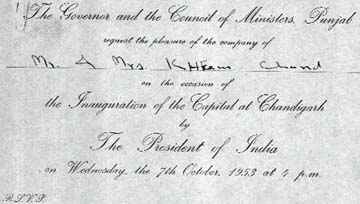 The Governor and the Council of Ministers, Punjab
request the pleasure of the company of
Mr. & Mrs. Khem Chand
on the occasion of
the Inauguration of the Capital at Chandigarh
by
The President of India
on Wednesday, the 7th October, 1953 at 4 p.m.
R.S.V.P.